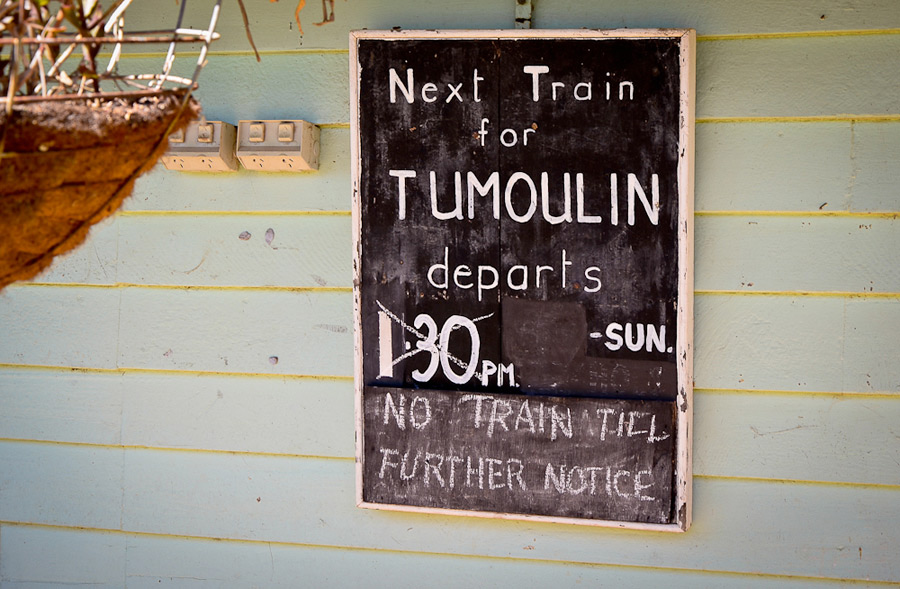 Next Train
for
TUMOULIN
departs
1.30 P.M. - SUN.
NO TRAIN TILL
FURTHER NOTICE